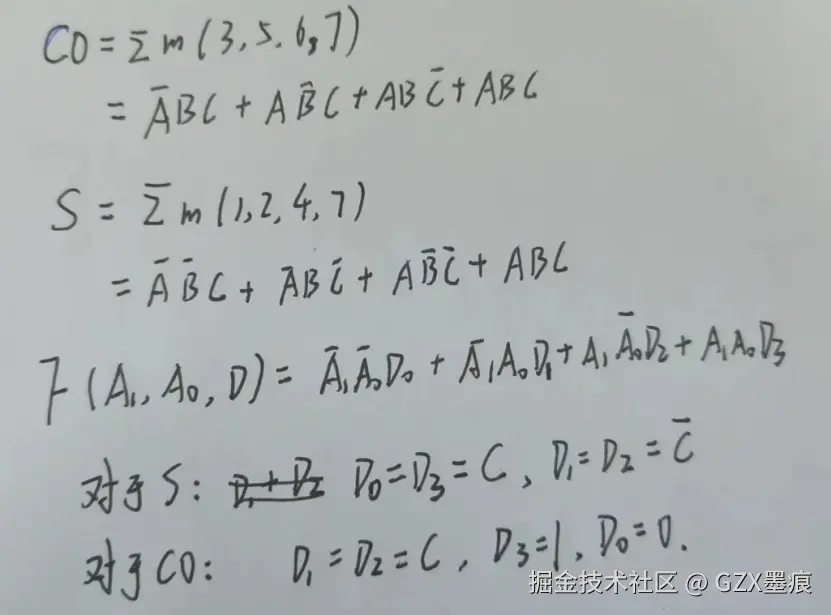 CO = Σ m (3, 5, 6, 7)
= A̅BC + AB̅C + ABC̅ + ABC
S = Σ m (1, 2, 4, 7)
= A̅B̅C + A̅BC̅ + AB̅C̅ + ABC
F (A₁, A₀, D) = A̅₁A̅₀D₀ + A̅₁A₀D₁ + A₁A̅₀D₂ + A₁A₀D₃
对于S: D₁+D₂ D₀=D₃=C, D₁=D₂=C̅
对于CO: D₁=D₂=C, D₃=1, D₀=0.
掘金技术社区 @ GZX墨痕